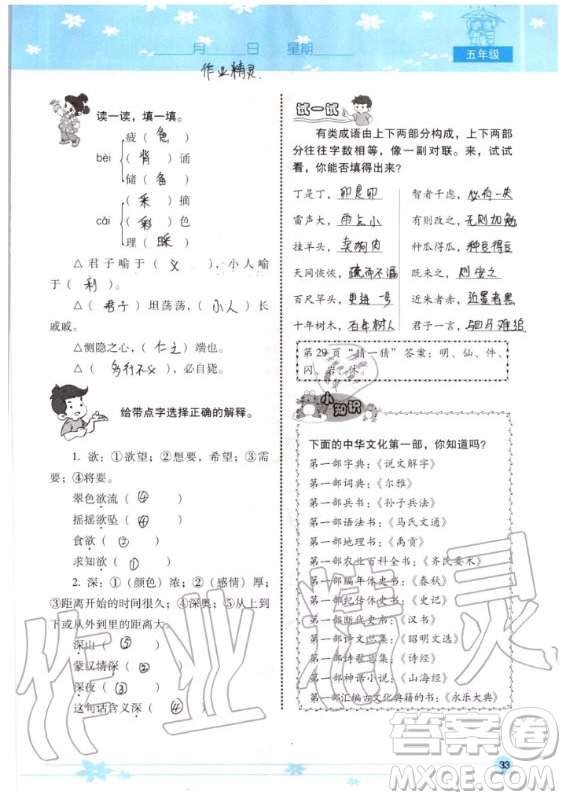 月 日 星期
五年级
作业精灵
读一读，填一填。
bèi
疲（惫）
（背）诵
储（备）
cǎi
（采）摘
（彩）色
理（睬）
△君子喻于（义），小人喻于
（利）。
△（君子）坦荡荡，（小人）长
戚戚。
△恻隐之心，（仁之）端也。
△（多行不义），必自毙。
给带点字选择正确的解释。
1. 欲：①欲望；②想要，希望；③需
要；④将要。
翠色欲流（④）
摇摇欲坠（④）
食欲（①）
求知欲（①）
2. 深：①（颜色）浓；②（感情）厚；
③距离开始的时间很久；④深奥；⑤从上到
下或从外到里的距离大。
深山（⑤）
蒙汉情深（②）
深夜（③）
这句话含义深（④）
试一试
有类成语由上下两部分构成，上下两部
分往往字数相等，像一副对联。来，试试
看，你能否填得出来？
丁是丁，卯是卯 智者千虑，必有一失
雷声大，雨点小 有则改之，无则加勉
挂羊头，卖狗肉 种瓜得瓜，种豆得豆
天网恢恢，疏而不漏 既来之，则安之
百尺竿头，更进一步 近朱者赤，近墨者黑
十年树木，百年树人 君子一言，驷马难追
第29页“猜一猜”答案：明、仙、件、
闪、 休。
小知识
下面的中华文化第一部，你知道吗？
第一部字典：《说文解字》
第一部词典：《尔雅》
第一部兵书：《孙子兵法》
第一部语法书：《马氏文通》
第一部地理书：《禹贡》
第一部农业百科全书：《齐民要术》
第一部编年体史书：《春秋》
第一部纪传体史书：《史记》
第一部断代史书：《汉书》
第一部诗文总集：《昭明文选》
第一部诗歌总集：《诗经》
第一部神话小说：《山海经》
第一部汇编古文化典籍的书：《永乐大典》
作业精灵
答案圈
MXQE.COM
33